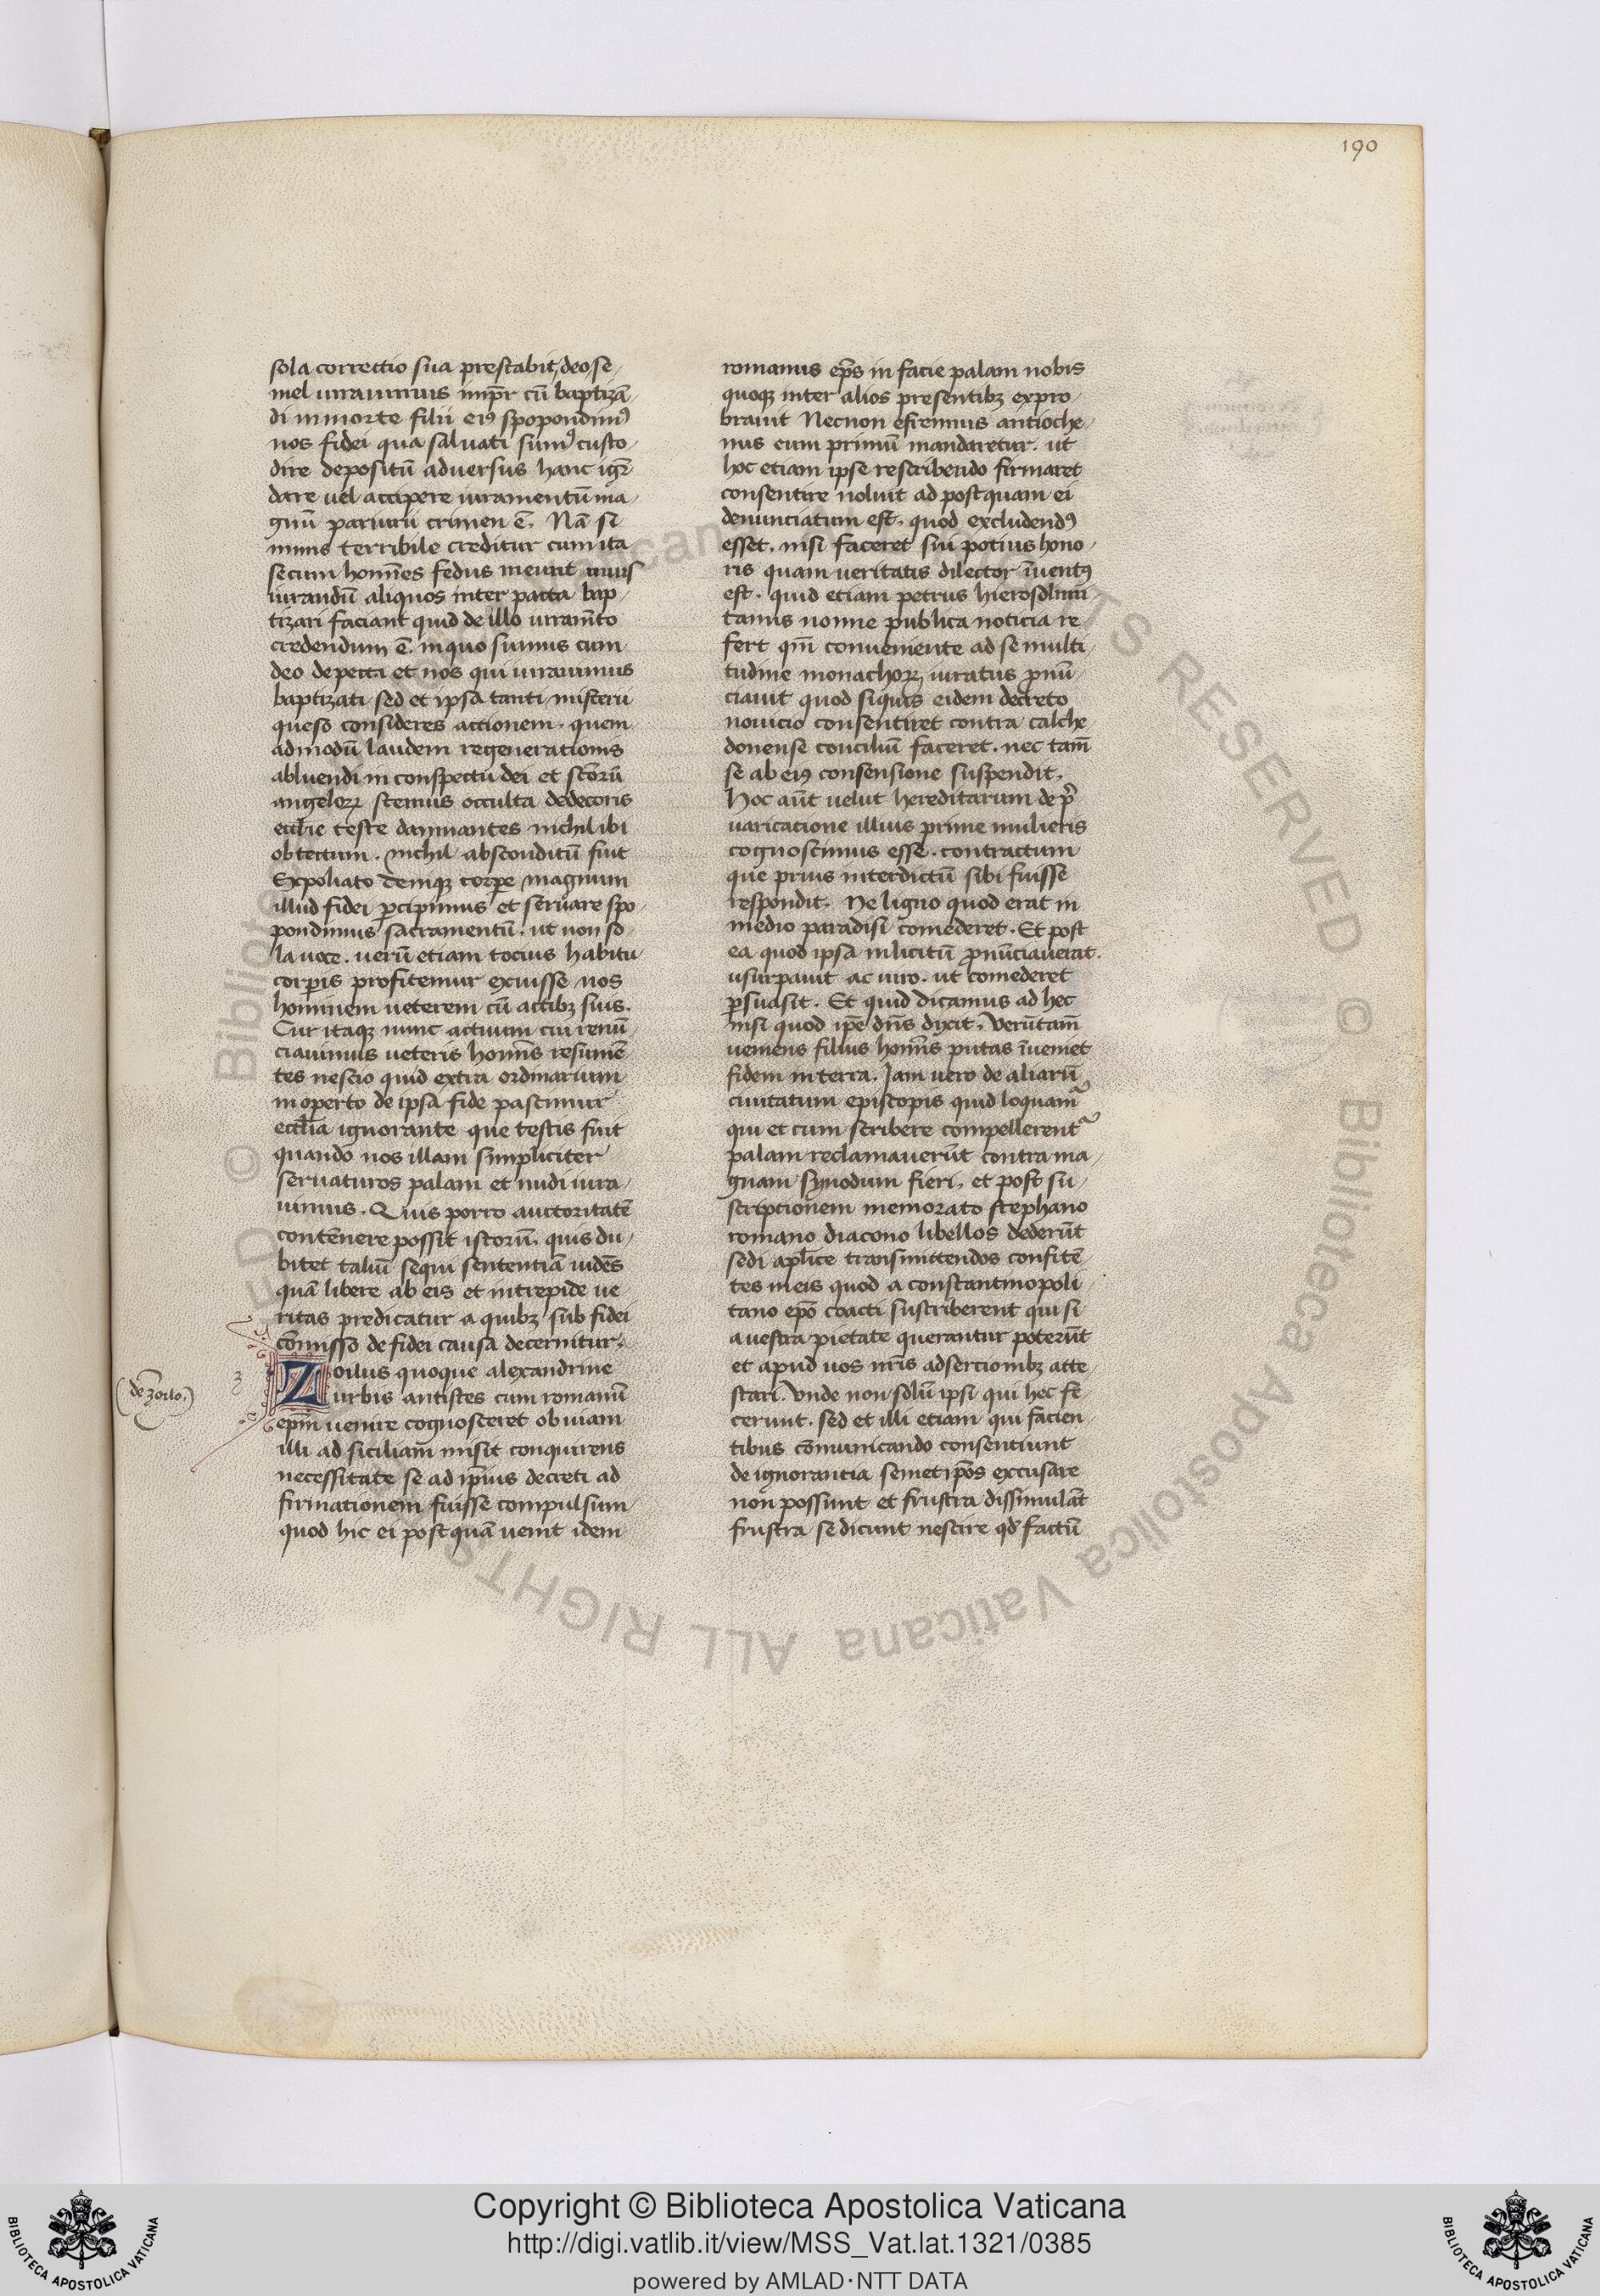 190
sola correctio sua prestabit, deo se/
mel iurauimus imp̄r cū baptizā/
di in morte filii eiꝰ spopondimꝰ
nos fidei qua saluati sumꝰ custo/
dire depositū aduersus hanc igr̄
dare uel accipere iuramentū ma/
gnū pariurii crimen ē. Nā si
minus terribile creditur cum ita
secum homīes fedus ineunt
iurandū aliquos inter pacta bap/
tizari faciant quid de illo iuram̄to
credendum ē. in quo sumus cum
deo depecti et nos qui iurauimus
baptizati sed et ipsa tanti misterii
queso consideres actionem. quem
admodū laudem regenerationis
abluendi in conspectu dei et sc̄torū
angeloꝝ stemus occulta dedecoris
eccl̄ie teste damnantes nichil ibi
obtectum. nichil absconditū fuit
Expoliato deniqꝫ corꝑe magnum
illud fidei ꝑcipimus et seruare spo/
pondimus sacramentū. ut non so/
la uoce. uerū etiam tocius habitu
corꝑis profitemur exuisse nos
hominem ueterem cū actibꝫ suis.
Cur itaqꝫ nunc actuum cui renū/
ciauimus ueteris homīs resumē/
tes nescio quid extra ordinarium
in operto de ipsa fide pascimur
eccl̄ia ignorante que testis fuit
quando nos illam simpliciter
seruaturos palam et nudi iura/
uimus. Quis porro auctoritatē
contēnere possit istorū. quis du/
bitet taliū sequi sententiā uidēs
quā libere ab eis et intrepide ue/
ritas predicatur a quibꝫ sub fidei
cōmisso de fidei causa decernitur.
de zoilo.
Zoilus quoque alexandrine
urbis antistes cum romanū
ep̄m uenire cognosceret obuiam
illi ad siciliam misit conquirens
necessitate se ad ip̄ius decreti ad
firmationem fuisse compulsum
quod hic ei postquā uenit idem
romanus ep̄s in facie palam nobis
quoqꝫ inter alios presentibꝫ expro/
brauit Necnon efremius antioche/
nus cum primū mandaretur. ut
hoc etiam ipse rescribendo firmaret
consentire noluit ad postquam ei
denunciatum est. quod excludendꝰ
esset. nisi faceret sui potius hono/
ris quam ueritatis dilector īuentꝰ
est. quid etiam petrus hierosolimi/
tanus nonne publica noticia re
fert qm̄ conueniente ad se multi/
tudine monachoꝝ, iuratus ꝓnū/
ciauit quod siquis eidem decreto
nouicio consentiret contra calche/
donense conciliū faceret. nec tam̄
se ab eiꝰ consensione suspendit.
Hoc aūt uelut hereditarium de p̄/
uaricatione illius prime mulieris
cognoscimus esse. contractum
que prius interdictū sibi fuisse
respondit. Ne ligno quod erat in
medio paradisi comederet. Et post
ea quod ipsa inlicitū ꝓnūciauerat.
usurpauit ac uiro. ut comederet
ꝑsuasit. Et quid dicamus ad hec
nisi quod ip̄e dn̄s dixit. Verūtam̄
ueniens filius homīs putas īueniet
fidem in terra. Jam uero de aliarū
ciuitatum episcopis quid loquam̄
qui et cum scribere compellerent̄
palam reclamauerūt contra ma/
gnam synodum fieri. et post su/
scriptionem memorato stephano
romano diacono libellos dederūt
sedi apl̄ice transmittendos confitē
tes in eis quod a constantinopoli/
tano ep̄o coacti suscriberent qui si
a uestra pietate querantur poterūt
et apud uos nr̄is adsercionibꝫ atte/
stari. Vnde non solū ipsi qui hec fe/
cerunt. sed et illi etiam qui facien/
tibus cōmunicando consentiunt
de ignorantia semet ip̄os excusare
non possunt et frustra dissimulāt
frustra se dicunt nescire qd̄ factū
Copyright © Biblioteca Apostolica Vaticana
http://digi.vatlib.it/view/MSS_Vat.lat.1321/0385
powered by AMLAD·NTT DATA
BIBLIOTECA APOSTOLICA VATICANA
BIBLIOTECA APOSTOLICA VATICANA